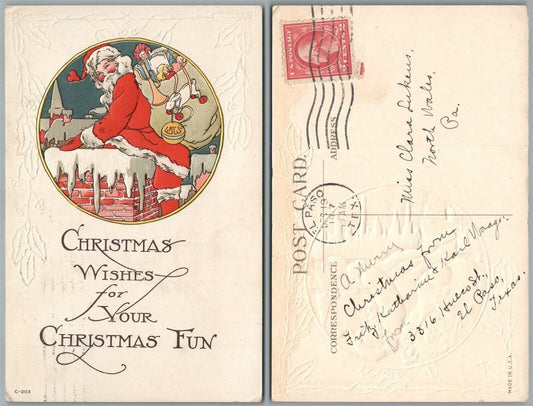 CHRISTMAS
WISHES
for
YOUR
CHRISTMAS FUN
C-203
U.S. POSTAGE
2 CENTS 2
EL PASO
TEX.
POST CARD.
ADDRESS
Miss Clara Lukens,
North Wales,
Pa.
CORRESPONDENCE
A Merry
Christmas from
Fritz, Katharine & Karl
3816 Hueco St.,
El Paso,
Texas.
MADE IN U.S.A.